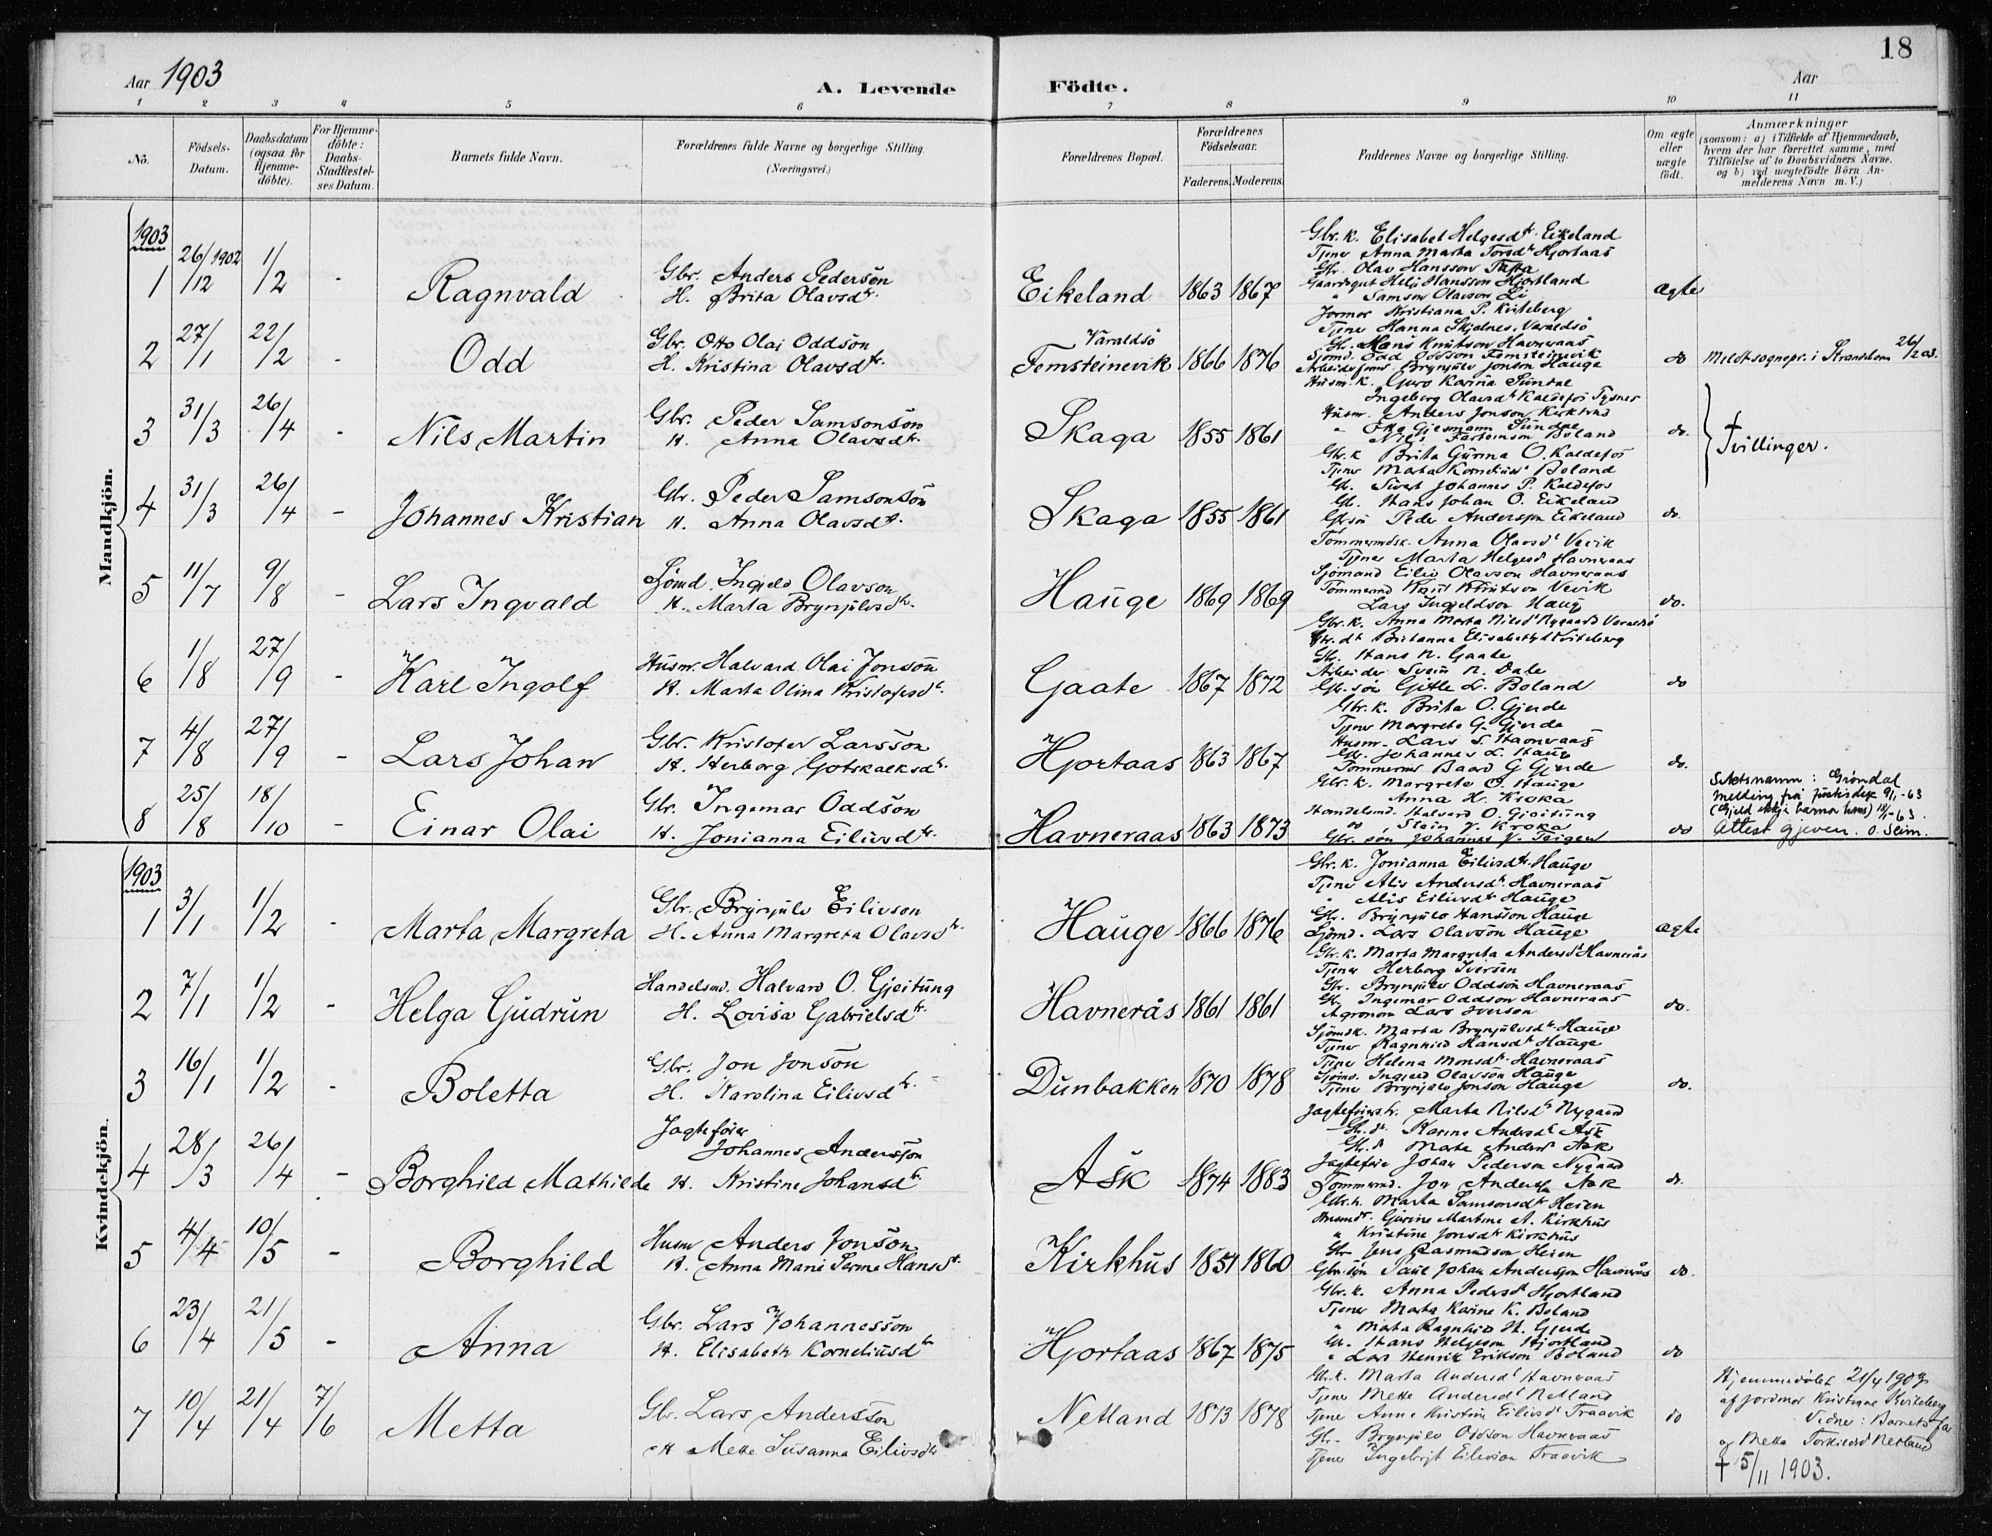 18
Aar 1903
A. Levende Födte.
Aar
1 2 3 4 5 6 7 8 9 10 11
No.
Födsels-Datum.
Daabsdatum (ogsaa for Hjemme-döbte).
For Hjemme-döbte: Daabs-Stadfæstel-ses Datum.
Barnets fulde Navn.
Forældrenes fulde Navne og borgerlige Stilling (Næringsvei.)
Forældrenes Bopæl.
Forældrenes Födselsaar.
Faderens. Moderens.
Faddernes Navne og borgerlige Stilling.
Om ægte eller uægte födt.
Anmærkninger
(saasom: a) i Tilfælde af Hjemmedaab,
hvem der har forrettet samme, med
Tilföielse af to Daabsvidners Navne.
og b) ved uægtefödte Börn An-
melderens Navn m. V.)
Mandkjön.
1903
1 26/12 1902 1/2 - Ragnvald
Gbr. Anders Pedersön
H. Brita Olavsdtr.
Eikeland 1863 1867
Gbr. k. Elisabet Helgesdtr. Eikeland
Tjener Anna Marta Torsdtr Hjortaas
Gbr. Olav Hansson Tufta
Gaardsgut Helj Hansson Hjortland
" Samson Olavson Li
ægte
2 27/1 22/2 - Odd
Gbr. Otto Olai Oddsön
H. Kristina Olavsdtr.
Varaldsö
Femsteinevik 1866 1876
Jormor Kristiana P. Kviteberg
Tjener Hanna Skjelnes, Varaldsö
Gbr. Hans Knutson Havneraas
Sjömd. Odd Oddson Femsteinevik
Arbeidsform. Brynjulv Jonson Hauge
do Meldt sognepr. i Strandebarm 26/2 03.
3 31/3 26/4 - Nils Martin
Gbr. Peder Samsonsön
H. Anna Olavsdtr.
Skaga 1855 1861
Husm. k. Guro Karina Sundal
Ingeborg Olavsdtr Kaldefos Tysnes
Husm. Anders Jonson Kirkhus
Nils Farteinson Boland
do. Tvillinger.
4 31/3 26/4 - Johannes Kristian
Gbr. Peder Samsonsön
H. Anna Olavsdtr.
Skaga 1855 1861
Gbr. k Brita Gurina O. Kaldefos
Tjener Marta Korneliusd Boland
Gbr. Sivert Johannes P. Kaldefos
Gbr. Hans Johan O. Eikeland
Gbr.sön Peder Andersson Eikeland
do.
5 11/7 9/8 - Lars Ingvald
Sjömd. Ingjeld Olavson
H. Marta Brynjulvsdtr.
Hauge 1869 1869
Tømmermdsk. Anna Olavsdtr Vevik
Tjener Marta Helgesd Havneraas
Sjömand Eiliv Olavson Havneraas
Tømmermd Knut Knutson Vevik
Lars Ingjeldson Haug
do.
6 1/8 27/9 - Karl Ingolf
Husm. Halvard Olai Jonsön
H. Marta Olina Kristofersdtr.
Gaate 1867 1872
Gbr. k. Anna Marta Nilsdtr Nygaard Varaldsö
Gbr. dtr Britanna Elisabet Kviteberg
Gbr. Hans N. Gaate
Arbeider Svein N. Dale
Gbr. sön Gitle L. Boland
do
7 4/8 27/9 - Lars Johan
Gbr. Kristofer Larsson
H. Herborg Gotskalksdtr.
Hjortaas 1863 1867
Gbr. k. Brita O. Gjerde
Tjener Margreta G. Gjerde
Husm. Lars S. Havneraas
Gbr. Johannes L. Haug
Tømmermd Baard G Gjerde
do.
8 25/8 18/10 - Einar Olai
Gbr. Ingemar Oddsön
H. Jonianna Eilivsdtr.
Havneraas 1863 1873
Gbr. k. Margreta O. Hauge
Anna H. Kroka
Handelsmd. Halvard O. Gjeitung
do Stein J. Kroka
Gbr. sön Johannes J. Teigen
do
Slektsnamn: Gröndal
melding frå justisdep. 9/1-63
(Gjeld ikkje barna hans) 18/1-63.
Attest gjeven. O. Seim.
Kvindekjön.
1903
1 3/1 1/2 - Marta Margreta
Gbr. Brynjulv Eilivson
H. Anna Margreta Olavsdtr.
Hauge 1866 1876
Gbr. k. Jonianna Eilivsdtr. Hauge
Tjener Alis Andersdtr. Havneraas
" Alis Eilivsdtr Hauge
Gbr. Brynjulv Hansson Hauge
Sjömd. Lars Olavson Hauge
ægte
2 7/1 1/2 - Helga Gudrun
Handelsmd. Halvard O. Gjeitung
H. Lovisa Gabrielsdtr.
Havnerås 1861 1861
Gbr. k. Marta Margreta Andersd Havnerås
Tjener Herborg Iversen
Gbr. Brynjulv Oddson Havneraas
Gbr. Ingemar Oddson Havneraas
Agronom Lars Iverson
do.
3 16/1 1/2 - Boletta
Gbr. Jon Jonson
H. Karolina Eilivsdtr.
Dunbakken 1870 1878
Sjömdk. Marta Brynjulvsdtr. Hauge
Tjener Ragnhild Hansdtr Hauge
Tjener Helena Monsdtr. Havneraas
Sjömd. Ingjeld Olavson Hauge
Tjener Brynjulv Jonson Hauge
do.
4 28/3 26/4 - Borghild Mathilde
Jagtefører
Johannes Andersson
H. Kristine Johansdtr.
Ask 1874 1883
Jagteførersk. Marta Nilsdtr Nygaard
Gbr. dtr. Karine Andersdtr Ask
Gbr. dtr Marta Andersd Ask
Jagtefører Johan Pederson Nygaard
Tømmermd. Jon Andersson Ask
do.
5 4/4 10/5 - Borghild
Husm Anders Jonson
H. Anna Marie Serine Hansdtr.
Kirkhus 1851 1860
Gbr. k. Marta Samsonsdtr Heien
Husmdtr. Gurine Martine A. Kirkhus
" Kristine Jonsdtr Kirkhus
Gbr Jens Rasmusson Heien
Gbr. sön Paul Johan Andersson Havnerås
do.
6 23/4 21/5 - Anna
Gbr. Lars Johannesson
H. Elisabeth Korneliusdtr
Hjortaas 1867 1875
Gbr. k. Anna Pedersd Hjortland
Tjener Marta Karine K. Boland
" Marta Ragnhild H. Gjerde
Gbr. Hans Helgeson Hjortland
" Lars Henrik Erikson Boland
do
7 10/4 21/4 7/6 Metta
Gbr. Lars Andersson
H Mette Susanna Eilivsdtr
Netland 1873 1878
Gbr. k. Marta Andersd Havneraas
Tjener Mette Andersd Netland
Tjener Anne Kristine Eilivsd Traavik
Gbr. Brynjulv Oddson Havneraas
Tjener Ingebrigt Eilivson Traavik
do
Hjemmedøbt 21/4 1903
af jordmor Kristiane Kviteberg
Vidne: Barnets far
og Metta Torkilsd Netland
† 5/11 1903.